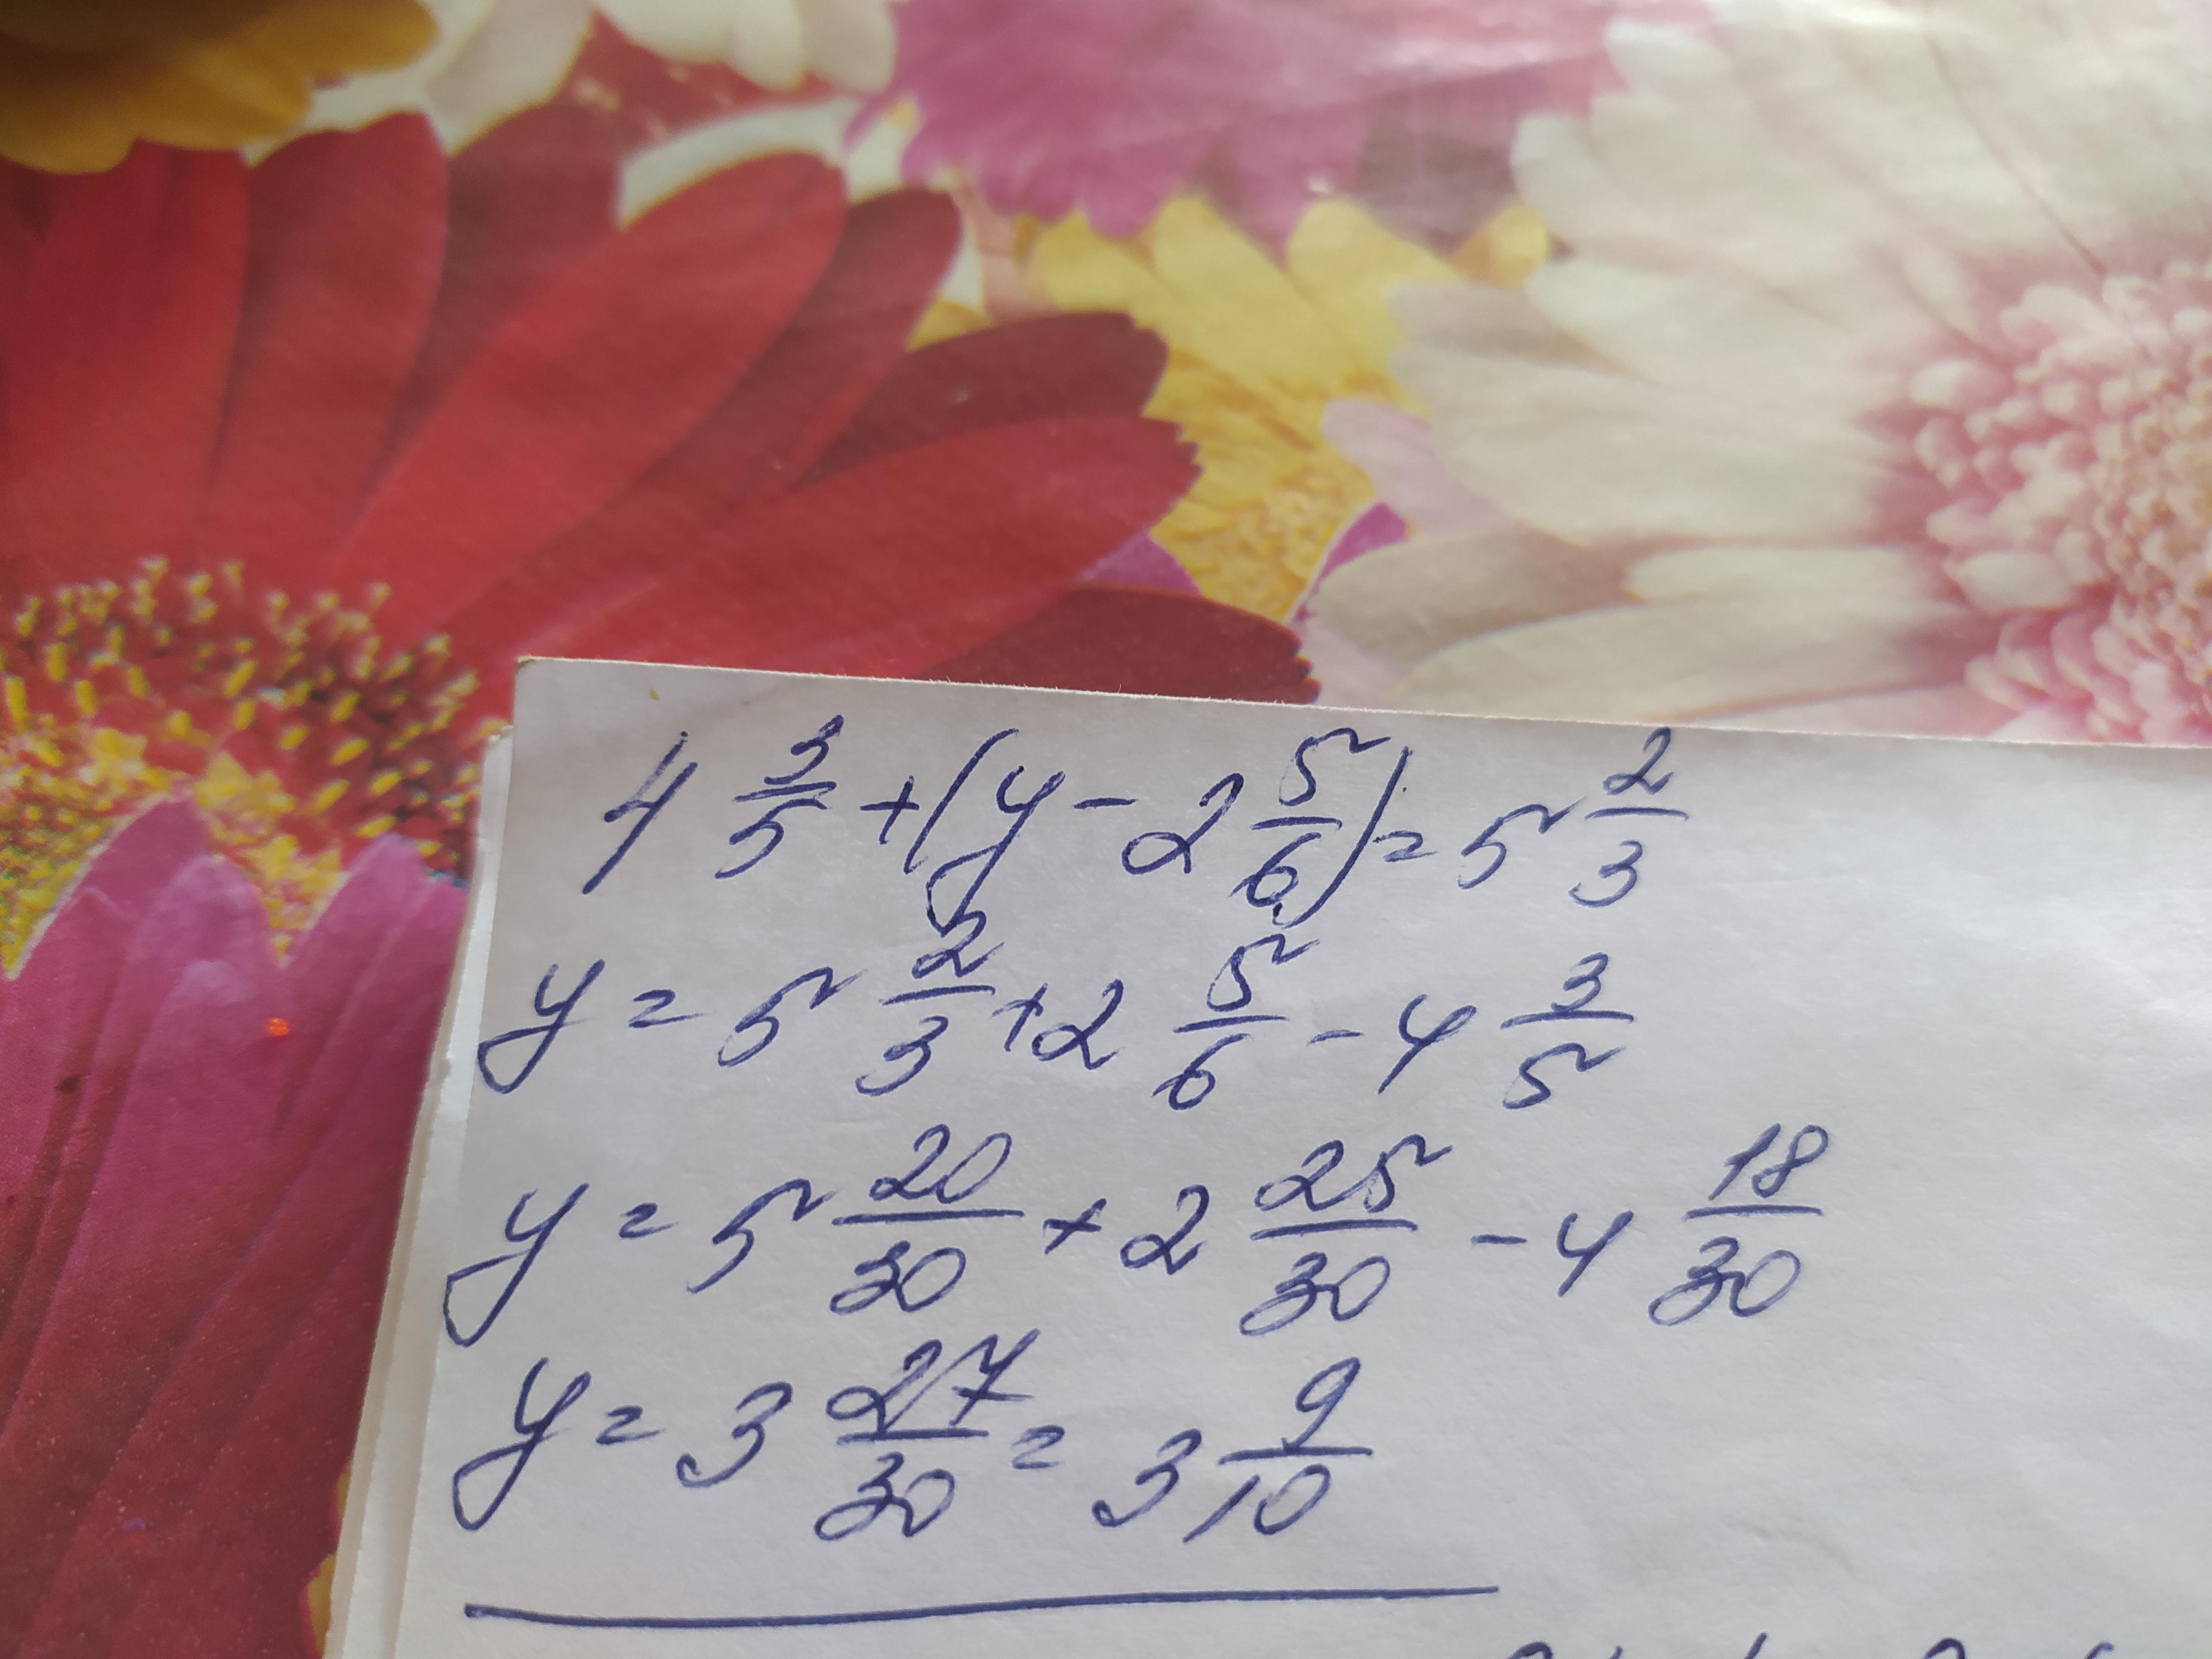 4 3/5 + (y - 2 5/6) = 5 2/3
y = 5 2/3 + 2 5/6 - 4 3/5
y = 5 20/30 + 2 25/30 - 4 18/30
y = 3 27/30 = 3 9/10